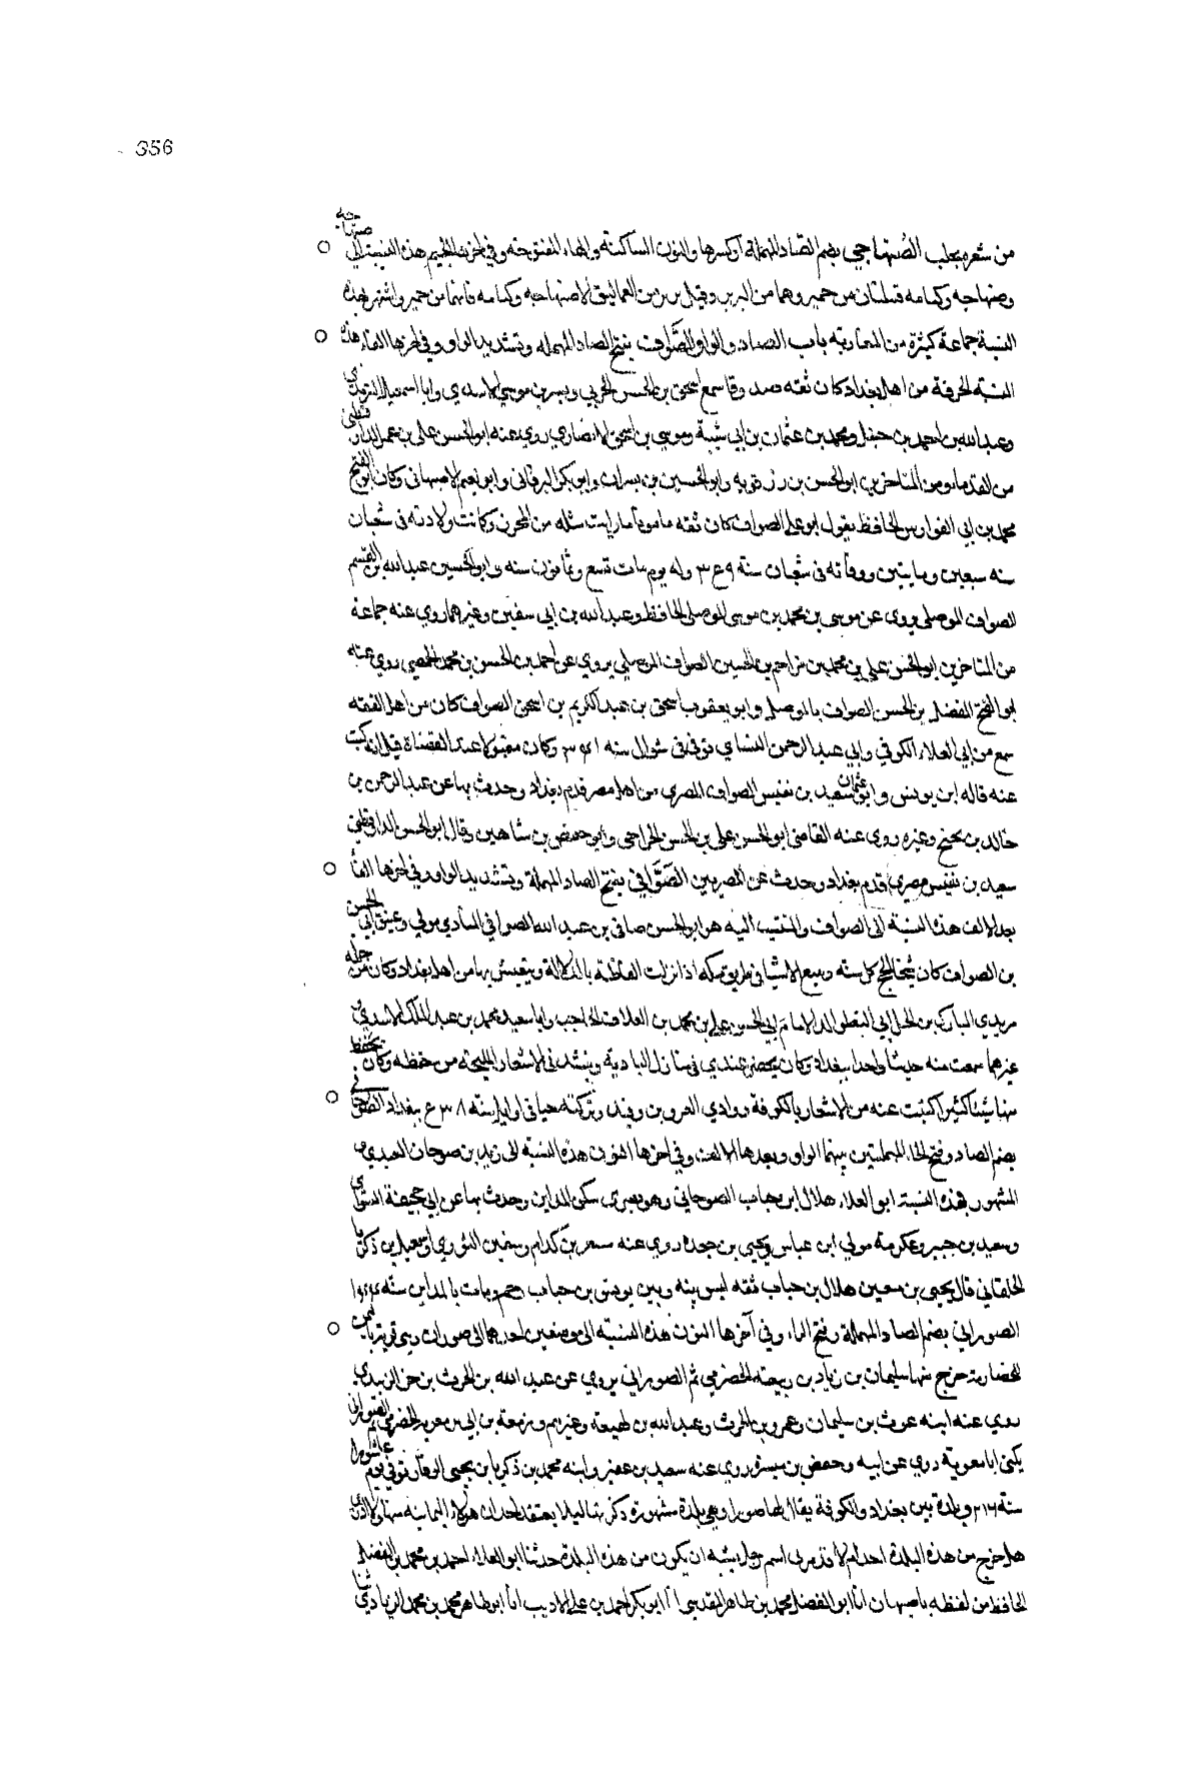 356
من شعره بحلب الصُنهاجي بضم الصاد المهملة او كسرها والنون الساكنة والهاء المفتوحة وفي اخرها الجيم هذه النسبة الى صنهاجة
وصنهاجه وكتامه قبيلتان من حمير وهما من البربر وقيل بربر من العماليق الا صنهاجه وكتامه فانهما من حمير واشتهر بهذه
النسبة جماعة كثيرة من المغاربة باب الصاد والواو الصَّواف بفتح الصاد المهمله وتشديد الواو وفي اخرها الفاء هذه
من اهل بغداد كان ثقه سمع اسحق بن الحسن الحربي وبشر بن موسى الاسدي وابا اسمعيل الترمذي
وعبد الله بن احمد بن حنبل ومحمد بن عثمان بن ابي شيبة وموسى بن اسحق الانصاري روى عنه ابو الحسن علي بن عمر الدارقطني
من القدماء ومن المتاخرين ابو الحسن بن رزقويه وابو الحسين بن بشران وابو بكر البرقاني وابو نعيم الاصبهاني وكان ابو الفتح
محمد بن ابي الفوارس الحافظ يقول ابو علي الصواف كان ثقه مامونا ما رايت مثله من التحرز وكانت ولادته في شعبان
سنه سبعين ومايتين ووفاته في شعبان سنة وله يوم مات تسع وثمانون سنه وابو الحسين عبد الله بن القسم
الصواف الموصلي يروى عن موسى بن محمد بن موسى الموصلي الحافظ وعبد الله بن ابي سفين وغيرهما روى عنه جماعة
من المتاخرين ابو الحسن علي بن محمد بن مزاحم بن الحسين الصواف الموصلي يروي عن احمد بن الحسن بن محمد الحمصي روى عنه
ابو الفتح المفضل بن الحسن الصواف بالموصل وابو يعقوب اسحق بن عبد الكريم بن اسحق الصواف كان من اهل الفقه
سمع من ابي العلاء الكوفي وابي عبد الرحمن النسائي توفي في شوال سنه وكان مقبولا عند القضاة قيل ان كتبت
عنه قاله ابن يونس وابو عثمان سعيد بن نفيس الصواف المصري من اهل مصر قدم بغداد وحدث بها عن عبد الرحمن بن
خالد بن نجيح وغيره روى عنه القاضي ابو الحسن علي بن الحسن الجراحي وابو حفص بن شاهين وقال ابو الحسن الدارقطني
سعيد بن نفيس مصري قدم بغداد وحدث عن المصريين الصَوَّافي بفتح الصاد المهملة وتشديد الواو وفي اخرها الفا
بعد الالف هذه النسبة الى الصواف والمنتسب اليه هو ابو الحسن صافي بن عبد الله الصوافي البادي مولى وعتيق ابي الحسن
بن الصواف كان يحج كل سنه ويبيع الاشيا في طريق مكه اذا نزلت القافلة بالدلالة ويتعيش بها من اهل بغداد وكان من جمله
مريدي المبارك بن الحل ابي البقا والد الامام ابي الحسن علي بن محمد بن العلاف الحاجب وابا سعيد محمد بن عبد الملك الاسدي
غيرهما سمعت منه حديثا واحدا ببغداد وكان يحضر عندي في منازل البادية وينشدني الاشعار المليحة من حفظه وكان يحفظ
منها شيئا كثيرا كتبت عنه من الاشعار بالكوفة ووادي العروس وفيد وتركته حيا في اوايل سنه ببغداد الصُوحاني
بضم الصاد وفتح الحاء المهملتين بينهما الواو وبعدها الالف وفي اخرها النون هذه النسبة الى زيد بن صوحان العبدي
المشهور بهذه النسبة ابو العلاء هلال بن خباب الصوحاني وهو بصرى سكن المداين وحدث بها عن ابي جحيفة السوائي
وسعيد بن جبير وعكرمة مولى ابن عباس ويحيى بن جعدة روى عنه مسعر بن كدام وسفين الثوري واسمعيل بن زكريا
الخلقاني قال يحيى بن معين هلال بن خباب ثقه ليس بينه وبين يونس بن خباب رحم ومات بالمداين سنه
الصوراني بضم الصاد المهملة وفتح الراء وفي آخرها النون هذه النسبة الى موضعين احدهما الى صوران وهي قرية باليمن
للحضارمة خرج منها سليمان بن زياد بن ربيعه الحضرمي ثم الصوراني يروي عن عبد الله بن الحرث بن جزء الزبيدي
روى عنه ابنه غوث بن سليمان وعمرو بن الحرث وعبد الله بن لهيعة وغيرهم وزمعة بن ابي بن معوية الحضرمي ثم الصوراني
يكنى ابا معوية روى عن ابيه وحفص بن ميسرة روى عنه سعيد بن عفير وابنه محمد بن زكريا بن يحيى الوقار توفي يوم عاشورا
سنة ٢١٦ وبلدة بين بغداد والكوفة يقال لها صورا وهي بلدة مشهورة ذكرتها ليلا يعتقد احد ان هولاء اليمانيه منها ولا ادرى
هل خرج من هذه البلدة احد ام لا وقد مر بي اسم رجل يشبه ان يكون من هذه البلدة حدثنا ابو العلاء احمد بن محمد بن الفضل
الحافظ من لفظه باصبهان انا ابو الفضل محمد بن طاهر المقدسي انا ابو بكر احمد بن علي الاديب انا ابو طاهر محمد بن محمد الزيادي ثنا